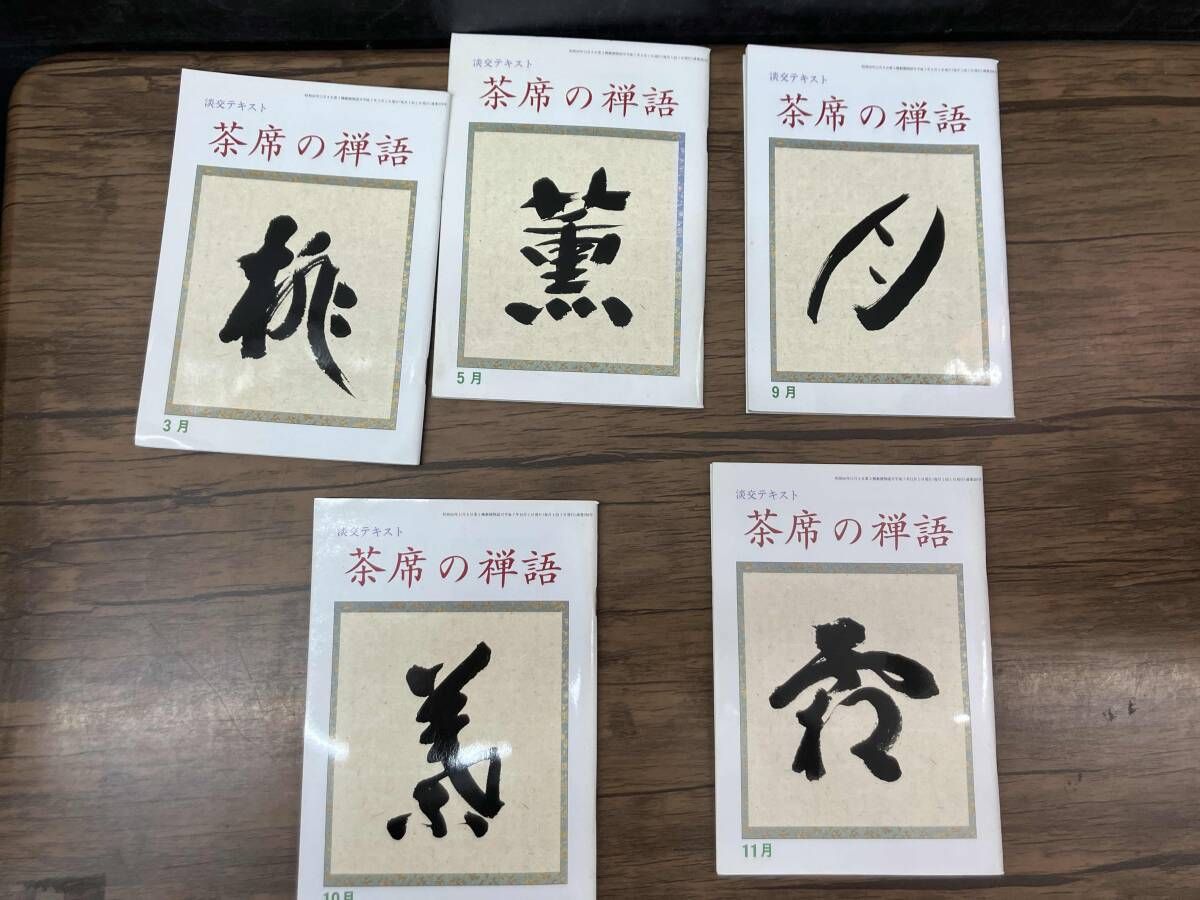 淡交テキスト
茶席の禅語
桃
3月
淡交テキスト
茶席の禅語
薫
5月
淡交テキスト
茶席の禅語
月
9月
淡交テキスト
茶席の禅語
10月
淡交テキスト
茶席の禅語
霜
11月